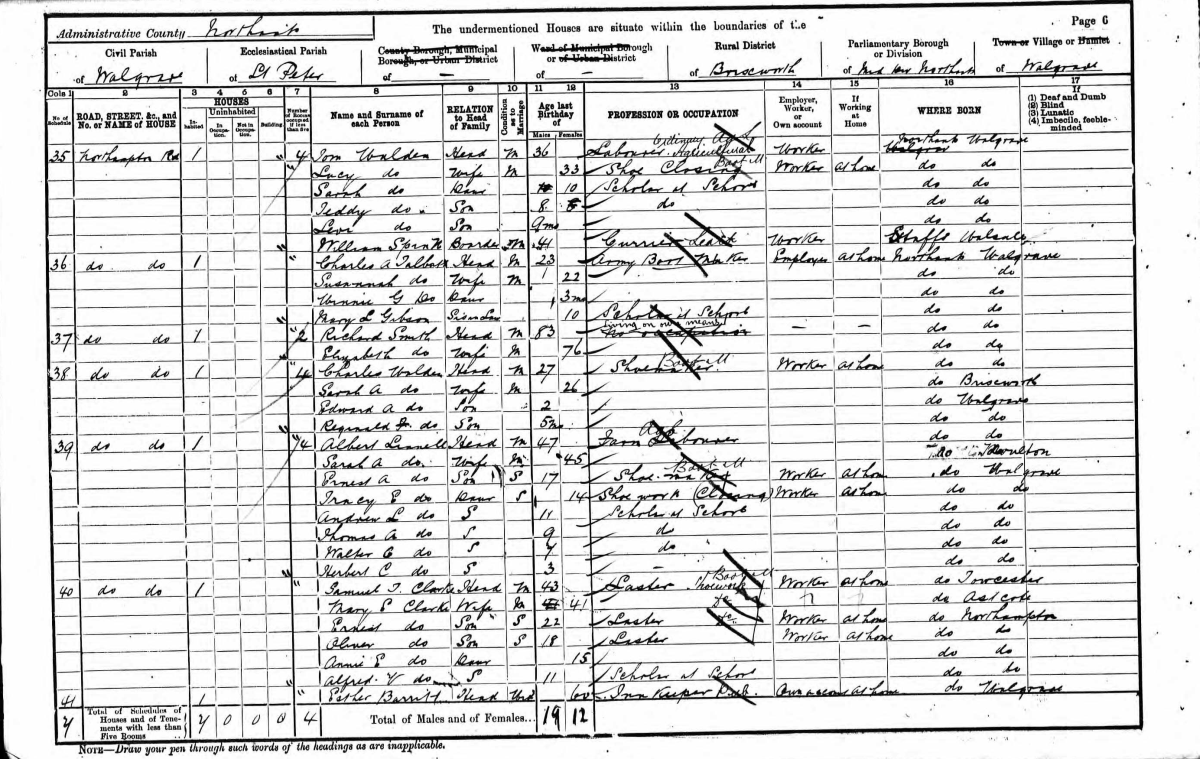 Administrative County Northants The undermentioned Houses are situate within the boundaries of the Page 6
Civil Parish Ecclesiastical Parish County Borough, Municipal Borough, or Urban District Ward of Municipal Borough or of Urban District Rural District Parliamentary Borough or Division Town or Village or Hamlet
of Walgrave of St Peter of — of — of Brixworth of Mid Northants of Walgrave
Cols 1 2 3 4 5 6 7 8 9 10 11 12 13 14 15 16 17
No. of Schedule ROAD, STREET, &c., and No. or NAME of HOUSE HOUSES Inhabited Uninhabited In Occupation. Not in Occupation. Building. Number of Rooms occupied if less than five Name and Surname of each Person RELATION to Head of Family Condition as to Marriage Age last Birthday of Males Females PROFESSION OR OCCUPATION Employer, Worker, or Own account If Working at Home WHERE BORN If (1) Deaf and Dumb (2) Blind (3) Lunatic (4) Imbecile, feeble-minded
35 Northampton Rd 1 4 Tom Walden Head M 36 Labourer Agricultural Worker Northants Walgrave
Lucy do Wife M 33 Shoe Closing Worker at home do do
Sarah do Daur 10 Scholar at School do do
Teddy do Son 8 do do do
Levi do Son 9mo do do
William Boarder M 41 Currier Worker Staffs Walsall
36 do do 1 Charles A Talbot Head M 23 Army Boot Maker Employer at home Northants Walgrave
Susannah do Wife M 22 do do
Winnie G Do Daur 3mo do do
Mary L Gibson 10 Scholar at School do do
37 do do 1 2 Richard Smith Head M 83 living on own means No occupation — — do do
Elizabeth do Wife M 76 do do
38 do do 1 4 Charles Walden Head M 27 Shoemaker Worker at home do do
Sarah A do Wife M 26 do Brixworth
Edward A do Son 2 do Walgrave
Reginald do Son 5mo do do
39 do do 1 4 Albert Linnell Head M 47 Farm Labourer do do
Sarah A do Wife M 45 do Moulton
Ernest A do Son S 17 Shoe Worker at home do Walgrave
Tracy E do Daur S 14 Shoe work (Closing) Worker at home do do
Andrew L do S 11 Scholar at School do do
Thomas A do S 9 do do do
Walter C do S 7 do do do
Herbert C do S 3 — do do
40 do do 1 Samuel T. Clarke Head M 43 Laster Worker at home do Towcester
Mary E Clarke Wife M 41 do Astcote
Ernest do Son S 22 Laster Worker at home do Northampton
Oliver do Son S 18 Laster Worker at home do do
Annie E do Daur 15 do do
Alfred V do S 11 Scholar at School do do
41 1 Esther Head Wid 60 Inn Keeper Pub. Own account at home do Walgrave
7 Total of Schedules of Houses and of Tenements with less than Five Rooms 7 0 0 0 4 Total of Males and of Females... 19 12
NOTE—Draw your pen through such words of the headings as are inapplicable.